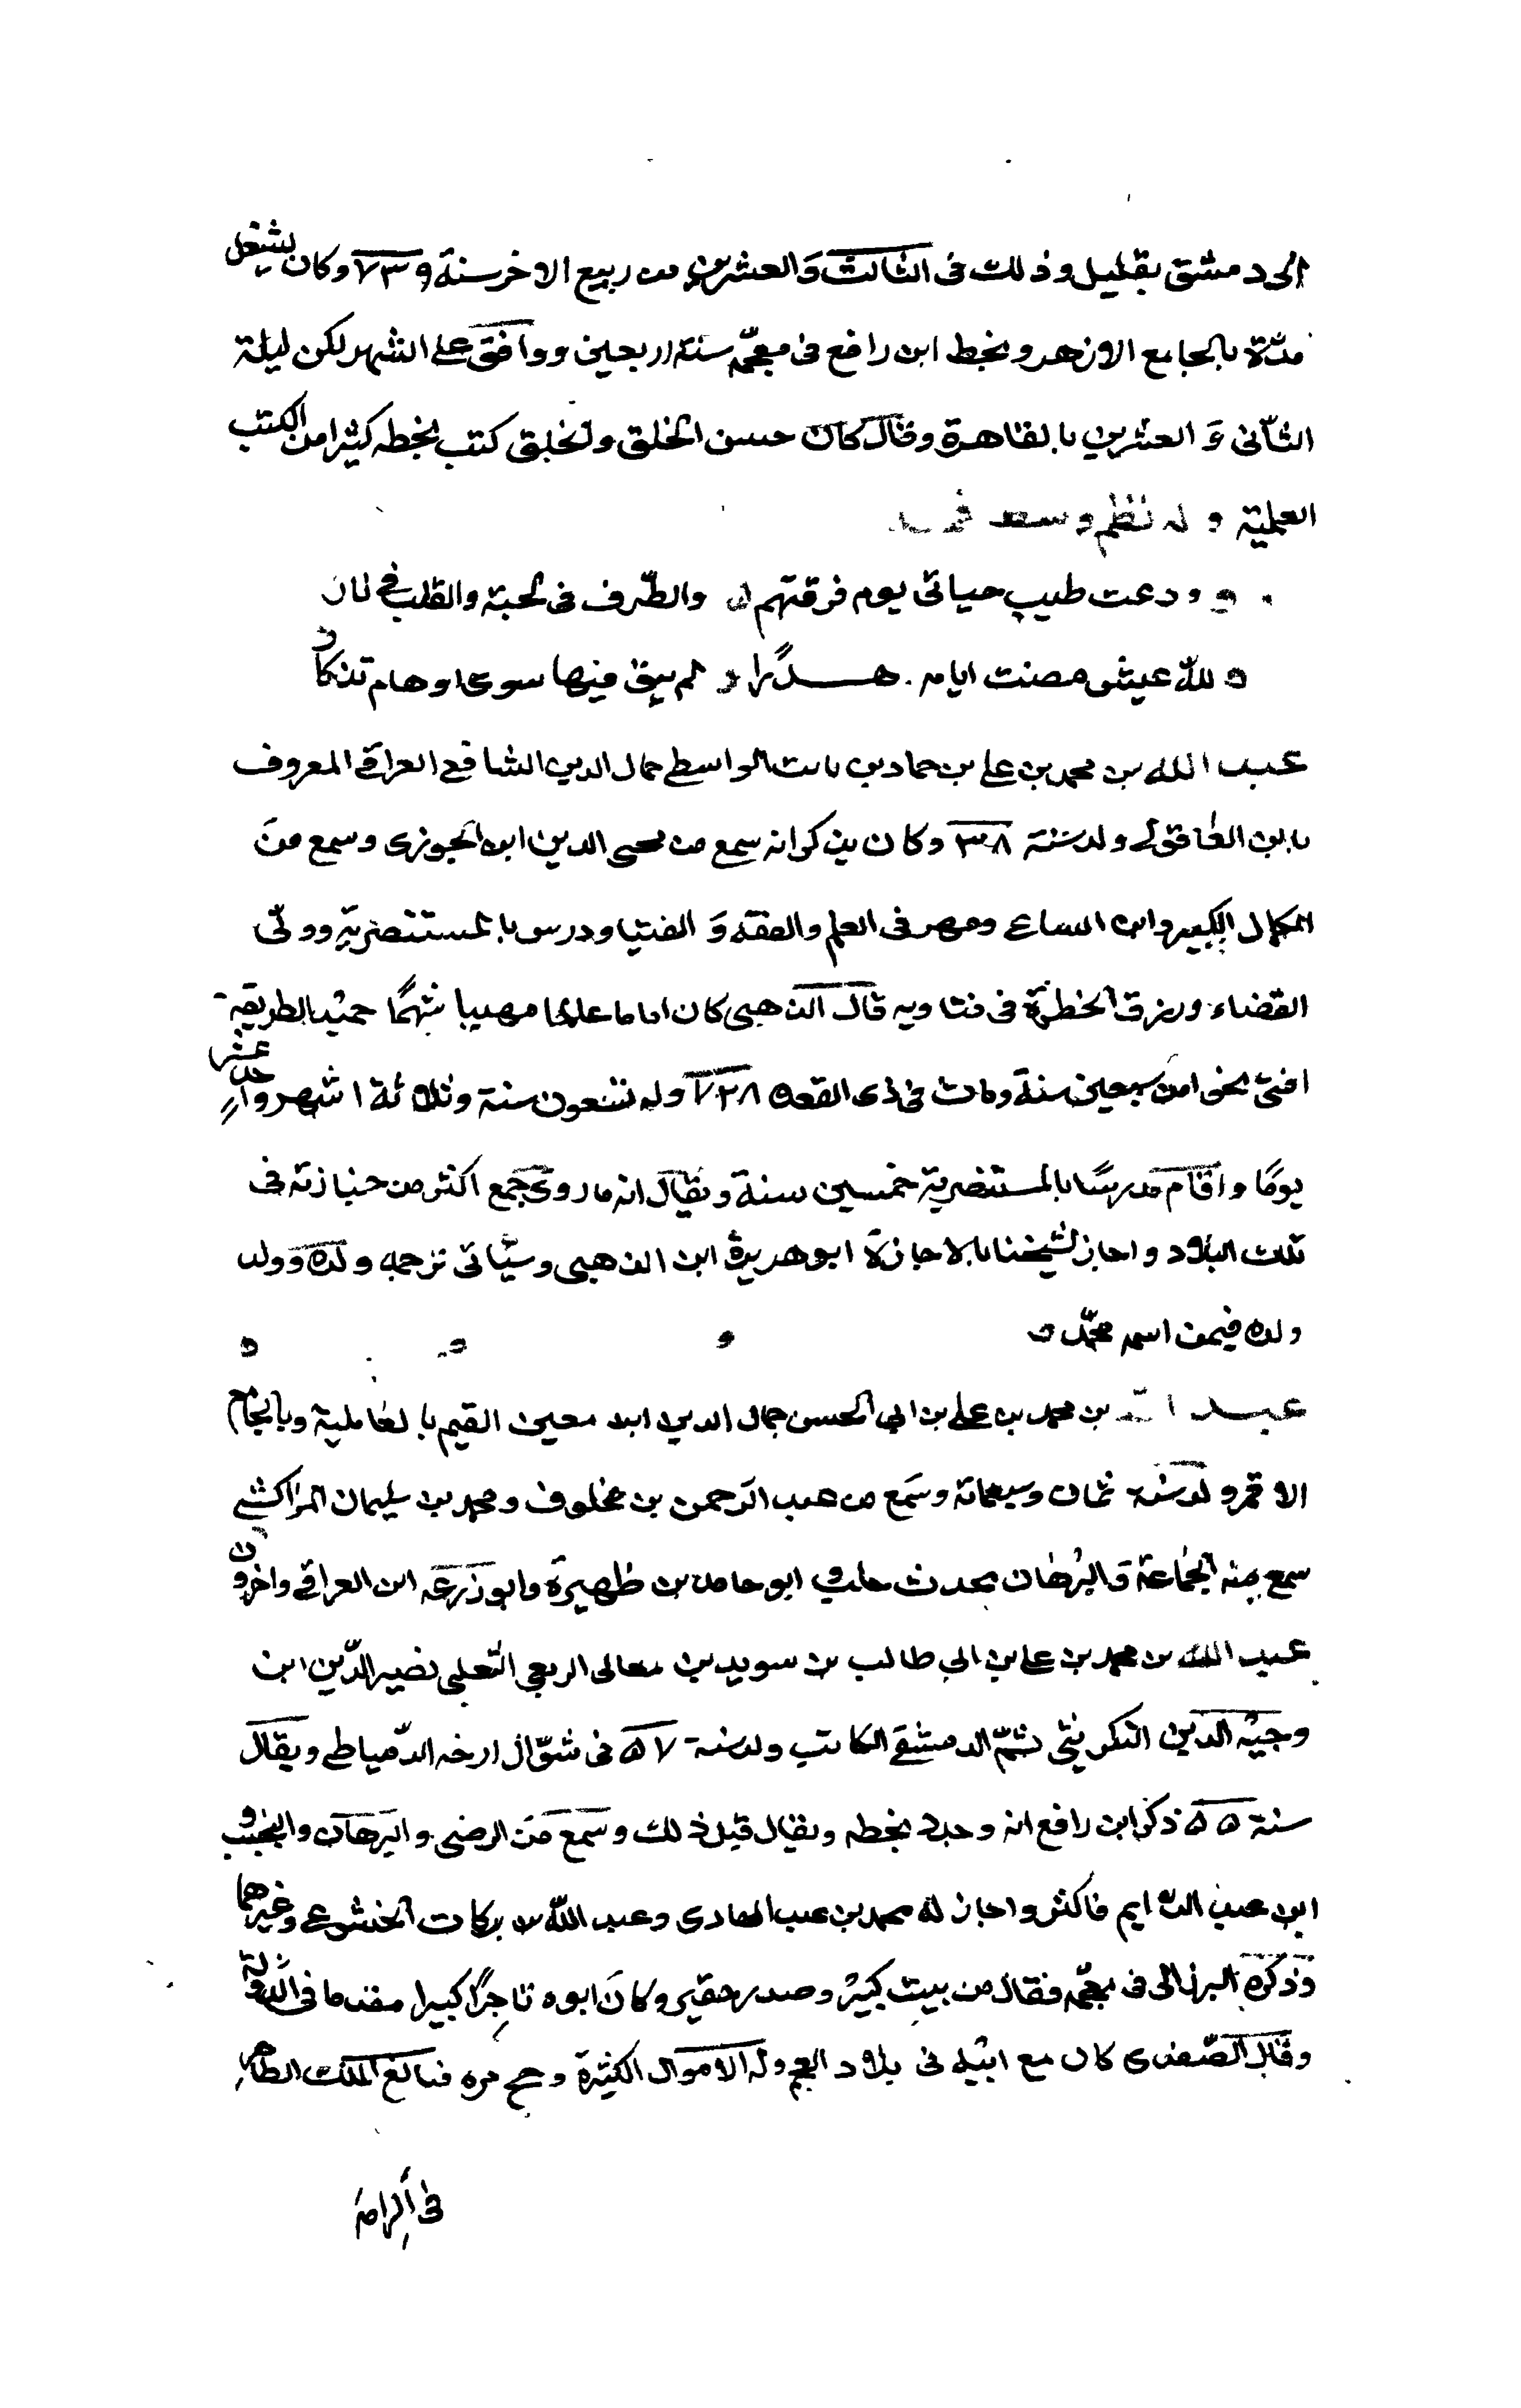 الى دمشق بقليل وذلك فى الثالث والعشرين من ربيع الاخر سنة ٧٣٩ وكان يشغل
مدّة بالجامع الازهر وبخط ابن رافع فى معجمه سنة اربعين ووافق على الشهر لكن ليلة
الثانى والعشرين بالقاهرة وقال كان حسن الخلق والخلق كتب بخطه كثيرا من الكتب
العلمية وله نظم وسط فمنه
ودعت طيب حياتى يوم فرقتهم والطرف فى لجة والقلب فى نار
لله عيش مضت ايامه هدرًا لم يبق فيها سوى اوهام تذكار
عبد الله بن محمد بن على بن حماد بن ثابت الواسطى جمال الدين الشافعى العراقى المعروف
بابن العاقولى ولد سنة ٣٨ وكان يذكر انه سمع من محيى الدين ابن الجوزى وسمع من
الكمال الكبير وابن الساعى ومهر فى العلم والفقه والفتيا ودرس بالمستنصرية وولى
القضاء ورزق الخطوة فى فتاويه قال الذهبى كان اماما عالما مهيبا شهمًا حميد الطريقة
افتى نحوا من سبعين سنة ومات فى ذى القعده ٧٢٨ وله تسعون سنة وثلاثة اشهر واحد عشر
يومًا واقام مدرسًا بالمستنصرية خمسين سنة ويقال انه ما روى جمع اكثر من جنازته فى
تلك البلاد واجاز لشيخنا بالاجازة ابو هريرة ابن الذهبى وسيأتى ترجمه ولده وولد
ولده فيمن اسمه محمّد
عبد الله بن محمد بن على بن ابى الحسن جمال الدين ابن معين القيم بالكاملية وبالجامع
الاقمر ولد سنة ثمان وسبعمائة وسمع من عبد الرحمن بن مخلوف ومحمد بن سليمان المراكشى
سمع منه الجماعة والبرهان محدث حلب وابو حامد بن ظهيرة وابو زرعة ابن العراقى واخرون
عبد الله بن محمد بن على بن ابى طالب بن سويد بن معالى الربعى التغلبى نصير الدّين ابن
وجيه الدين التكريتى ثمّ الدمشقى الكاتب ولد سنة ٥٧ فى شوّال ارخه الدّمياطى ويقال
سنة ٥٥ ذكر ابن رافع انه وجده بخطه ويقال قبل ذلك وسمع من الرضى والبرهان والنجيب و
ابن عبد الدايم فاكثر واجاز له محمد بن عبد الهادى وعبد الله بن بركات الخشوعى وغيرهما
وذكره البرزالى فى معجمه فقال من بيت كبير وصدر حقير وكان ابوه تاجرًا كبيرا مقدما فى الدولة
وقال الصّفدى كان مع ابيه فى بلاد العجم وله الاموال الكثيرة وحج مره فبالغ الملك الظاهر
فى اكرامه